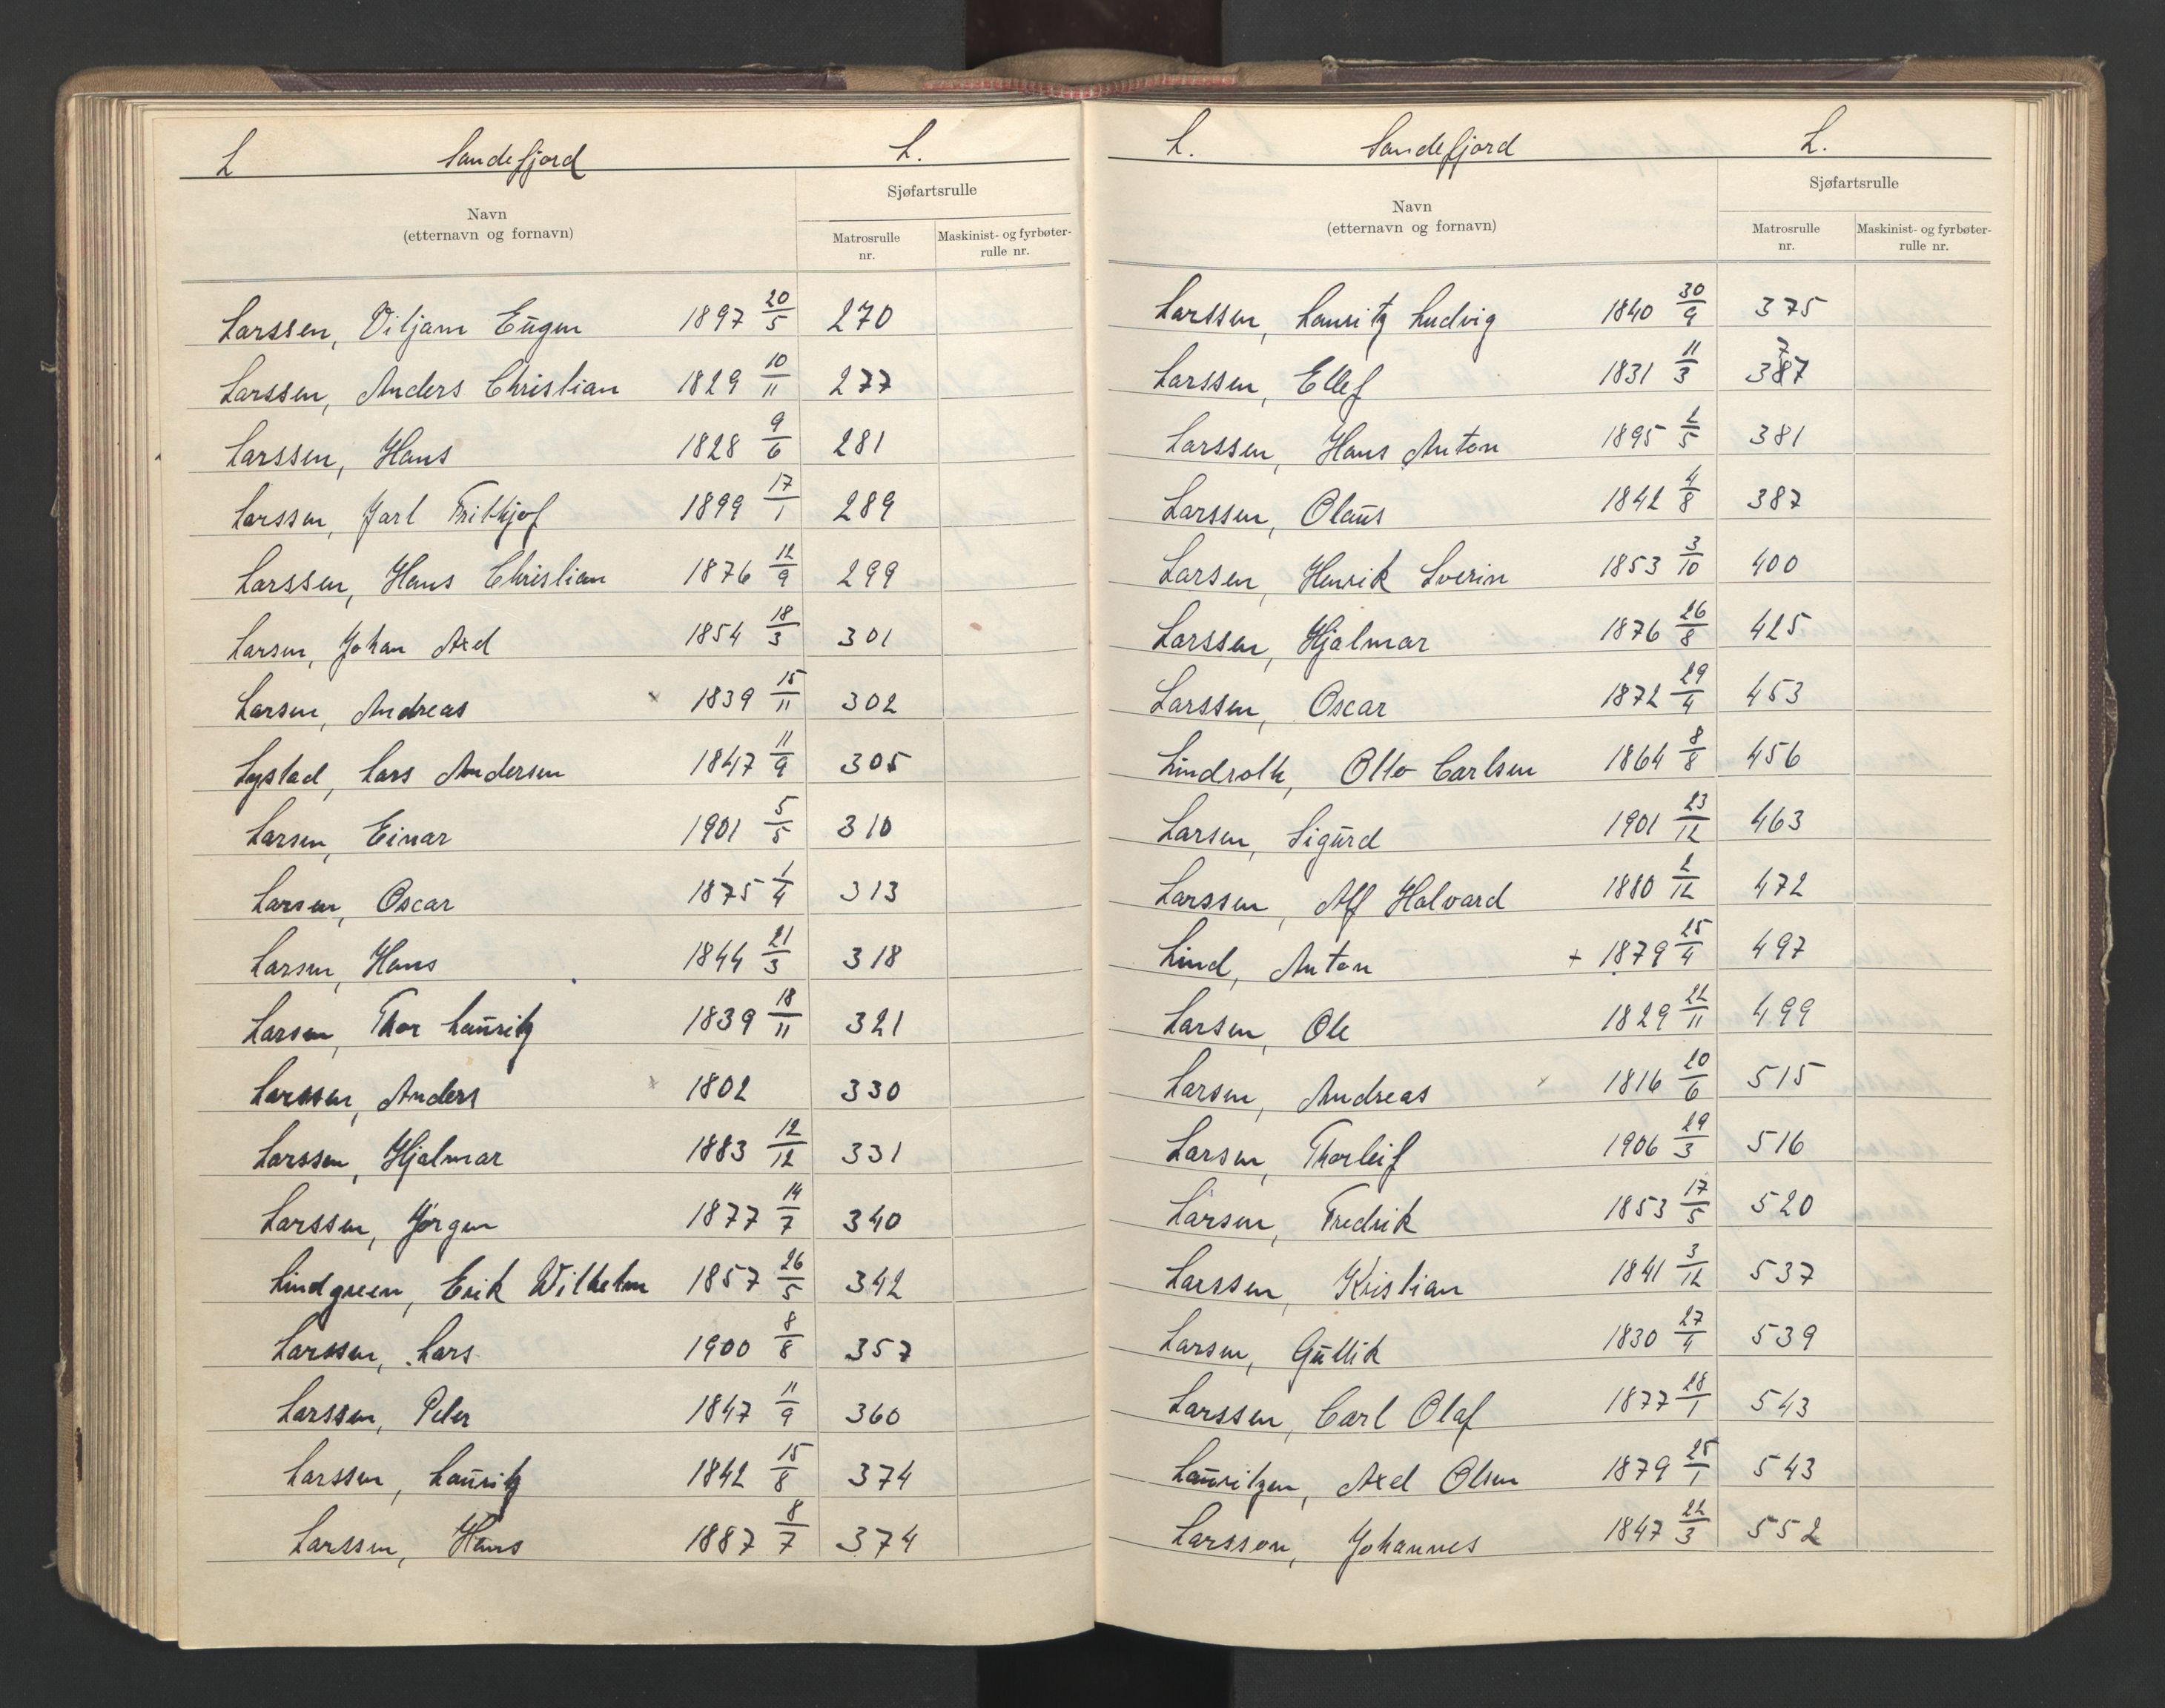 L Sandefjord L.
Sjøfartsrulle
Navn
(etternavn og fornavn)
Matrosrulle nr.
Maskinist- og fyrbøter-rulle nr.
Larssen, Viljam Eugen 1897 20/5 270
Larssen, Anders Christian 1829 10/11 277
Larssen, Hans 1828 9/6 281
Larssen, Jarl Frithjof 1899 17/1 289
Larssen, Hans Christian 1876 12/9 299
Larsen, Johan Axel 1854 18/3 301
Larsen, Andreas x 1839 15/11 302
Lystad, Lars Andersen 1847 11/9 305
Larsen, Einar 1901 5/5 310
Larsen, Oscar 1875 1/4 313
Larsen, Hans 1844 21/3 318
Larsen, Thor Lauritz 1839 18/11 321
Larssen, Anders x 1802 330
Larssen, Hjalmar 1883 12/12 331
Larssen, Jørgen 1877 14/7 340
Lindgreen, Erik Wilhelm 1857 26/5 342
Larssen, Lars 1900 8/8 357
Larssen, Peter 1847 11/9 360
Larssen, Lauritz 1842 15/8 374
Larssen, Hans 1887 8/7 374
L. Sandefjord L.
Sjøfartsrulle
Navn
(etternavn og fornavn)
Matrosrulle nr.
Maskinist- og fyrbøter-rulle nr.
Larssen, Lauritz Ludvig 1840 30/9 375
7
Larssen, Ellef 1831 11/3 387
Larssen, Hans Anton 1895 2/5 381
Larssen, Olaus 1842 4/8 387
Larsen, Henrik Sverin 1853 3/10 400
Larssen, Hjalmar 1876 26/8 425
Larssen, Oscar 1872 29/4 453
Lindroth, Otto Carlsen 1864 8/8 456
Larsen, Sigurd 1901 23/12 463
Larssen, Alf Halvard 1880 2/12 472
Lind, Anton + 1879 25/4 497
Larsen, Ole 1829 22/11 499
Larsen, Andreas x 1816 20/6 515
Larsen, Thorleif 1906 29/3 516
Larsen, Fredrik 1853 17/5 520
Larssen, Kristian 1841 3/12 537
Larsen, Gullik 1830 27/4 539
Larssen, Carl Olaf 1877 28/1 543
Lauritzen, Axel Olsen 1879 25/1 543
Larsson, Johannes 1847 22/3 552